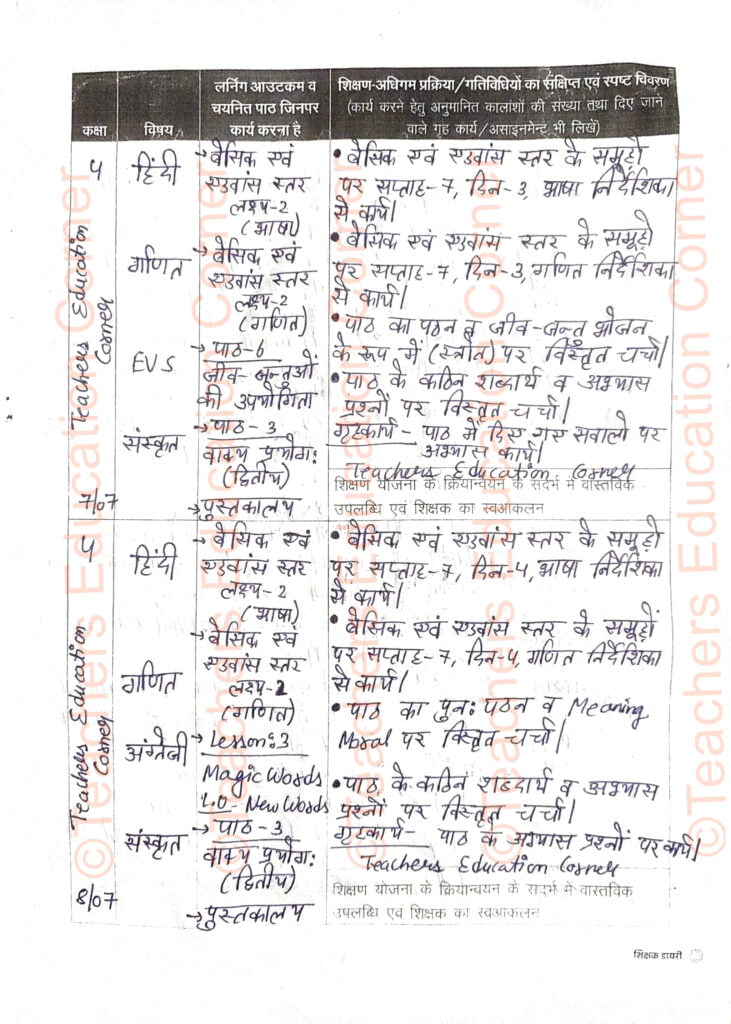 कक्षा
विषय
लर्निंग आउटकम व
चयनित पाठ जिनपर
कार्य करना है
शिक्षण-अधिगम प्रक्रिया/गतिविधियों का संक्षिप्त एवं स्पष्ट विवरण
(कार्य करने हेतु अनुमानित कालांशों की संख्या तथा दिए जाने
वाले गृह कार्य/असाइनमेन्ट भी लिखें)
Teachers Education
Corner
4
7/07
हिंदी
→ बेसिक एवं
एडवांस स्तर
लक्ष्य-2
(भाषा)
• बेसिक एवं एडवांस स्तर के समूहों
पर सप्ताह-7, दिन-3, भाषा निर्देशिका
से कार्य।
गणित
→ बेसिक एवं
एडवांस स्तर
लक्ष्य-2
(गणित)
• बेसिक एवं एडवांस स्तर के समूहों
पर सप्ताह-7, दिन-3, गणित निर्देशिका
से कार्य।
EVS
→ पाठ-6
जीव-जन्तुओं
की उपयोगिता
• पाठ का पठन व जीव-जन्तु भोजन
के रूप में (स्त्रोत) पर विस्तृत चर्चा।
संस्कृत
→ पाठ-3
वाक्य प्रयोग:
(द्वितीय)
→ पुस्तकालय
• पाठ के कठिन शब्दार्थ व अभ्यास
प्रश्नों पर विस्तृत चर्चा।
गृहकार्य - पाठ में दिए गए सवालो पर
अभ्यास कार्य।
Teachers Education Corner
शिक्षण योजना के क्रियान्वयन के संदर्भ में वास्तविक
उपलब्धि एवं शिक्षक का स्वआकलन
Teachers Education
Corner
4
8/07
हिंदी
→ बेसिक एवं
एडवांस स्तर
लक्ष्य-2
(भाषा)
• बेसिक एवं एडवांस स्तर के समूहों
पर सप्ताह-7, दिन-4, भाषा निर्देशिका
से कार्य।
गणित
→ बेसिक एवं
एडवांस स्तर
लक्ष्य-2
(गणित)
• बेसिक एवं एडवांस स्तर के समूहों
पर सप्ताह-7, दिन-4, गणित निर्देशिका
से कार्य।
अंग्रेजी
→ Lesson:3
Magic Words
L.O- New Words
• पाठ का पुन: पठन व Meaning
Moral पर विस्तृत चर्चा।
संस्कृत
→ पाठ-3
वाक्य प्रयोग:
(द्वितीय)
→ पुस्तकालय
• पाठ के कठिन शब्दार्थ व अभ्यास
प्रश्नों पर विस्तृत चर्चा।
गृहकार्य- पाठ के अभ्यास प्रश्नों पर कार्य।
Teachers Education Corner
शिक्षण योजना के क्रियान्वयन के संदर्भ में वास्तविक
उपलब्धि एवं शिक्षक का स्वआकलन
शिक्षक डायरी
©Teachers Education Corner
©Teachers Education Corner
©Teachers Education Corner
©Teachers Education Corner